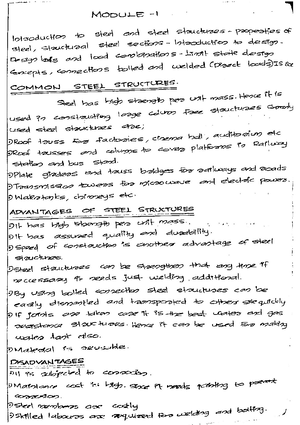 MODULE - 1
Introduction to steel and steel structures - properties of
steel, structural steel sections - Introduction to design.
Design loads and load combinations - Limit state design
concepts, connections bolted and welded (Direct loads) IS
COMMON STEEL STRUCTURES.
Steel has high strength per unit mass. Hence it is
used in constructing large column free structures. Comonly
used steel structures are;
Roof truss for factories, cinema hall, auditorium etc
Roof trusses and columns to cover platforms in Railway
station and bus stand.
Plate girders and truss bridges for railways and roads
Transmission towers for microwave and electric power.
Watertanks, chimneys etc.
ADVANTAGES OF STEEL STRUCTURES
It has high strength per unit mass.
It has assured quality and durability.
Speed of construction is another advantage of steel
structures.
Steel structures can be strengthen that any time if
neccessary it needs just welding additional.
By using bolted connection steel structures can be
easily dismantled and transported to other site quickly
If joints are taken care it is the best water and gas
resistance structures. Hence it can be used for making
water tank also.
Material is reusable.
DISADVANTAGES
It is subjected to corrosion.
Maintance cost is high. Since it needs painting to prevent
corrosion.
Steel members are costly
Skilled labours are required for welding and bolting.